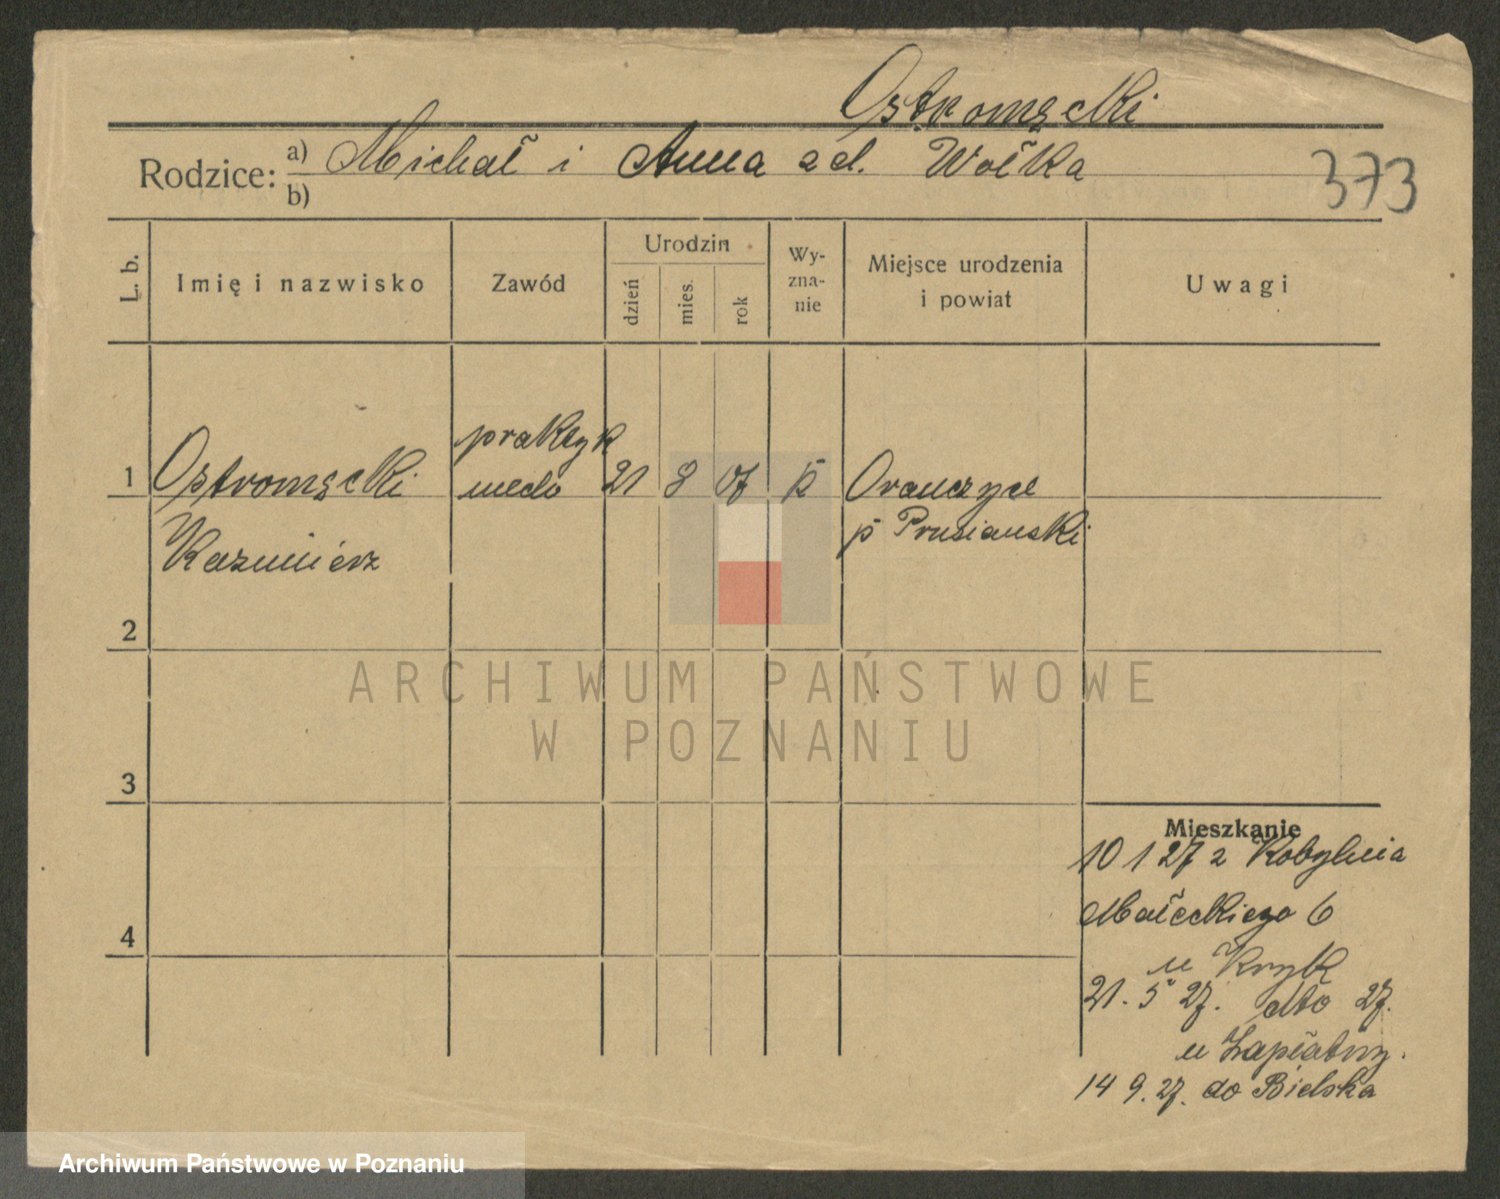 Ostromęcki
Rodzice: a) Michał i Anna zd. Wołka
b)
373
L. b.
Imię i nazwisko
Zawód
Urodzin
dzień
mies.
rok
Wy-
zna-
nie
Miejsce urodzenia
i powiat
Uwagi
praktyk
1 Ostromęcki 21 8 07 k Oranczyce
p Prusianski
Kazimierz
2
3
4
ARCHIWUM PAŃSTWOWE
W POZNANIU
Mieszkanie
10 1 27 z Kobylnica
Małeckiego 6
u Kryk
21. 5 27. dto 27.
u Zapłatny.
14 9. 27. do Bielska
Archiwum Państwowe w Poznaniu